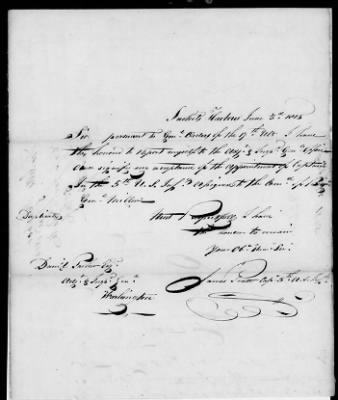 Sacketts Harbour June 5th 1815
Sir, pursuant to Genl. Orders of the 17th Ult. I have
the honour to report myself to the Adjt. & Insp. Genl. Office
and signify my acceptance of the appointment of Captain
in the 5th U.S. Inf.
Genl. Miller
Duplicate
With Respect I have
the honour to remain
Your Obt. Servt.
Daniel Parker Esq.
Adjt. & Insp. Genl.
Washington
James Pratt Capt. 5th U.S. Inf.